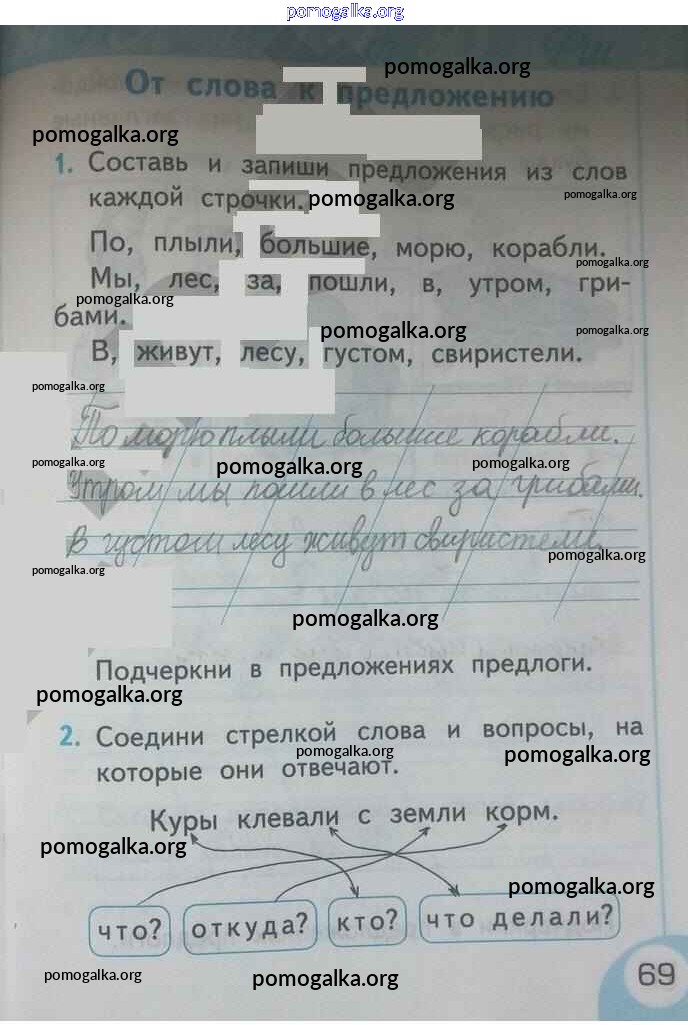 pomogalka.org
pomogalka.org
От слова к предложению
pomogalka.org
1. Составь и запиши предложения из слов
pomogalka.org
каждой строчки. pomogalka.org
По, плыли, большие, морю, корабли.
pomogalka.org
Мы, лес, за, пошли, в, утром, гри-
pomogalka.org
бами.
pomogalka.org pomogalka.org
В, живут, лесу, густом, свиристели.
pomogalka.org
По морю плыли большие корабли.
pomogalka.org pomogalka.org pomogalka.org
Утром мы пошли в лес за грибами.
В густом лесу живут свиристели.
pomogalka.org
pomogalka.org
pomogalka.org
Подчеркни в предложениях предлоги.
pomogalka.org
2. Соедини стрелкой слова и вопросы, на
pomogalka.org pomogalka.org
которые они отвечают.
Куры клевали с земли корм.
pomogalka.org
pomogalka.org
что? откуда? кто? что делали?
pomogalka.org pomogalka.org
69